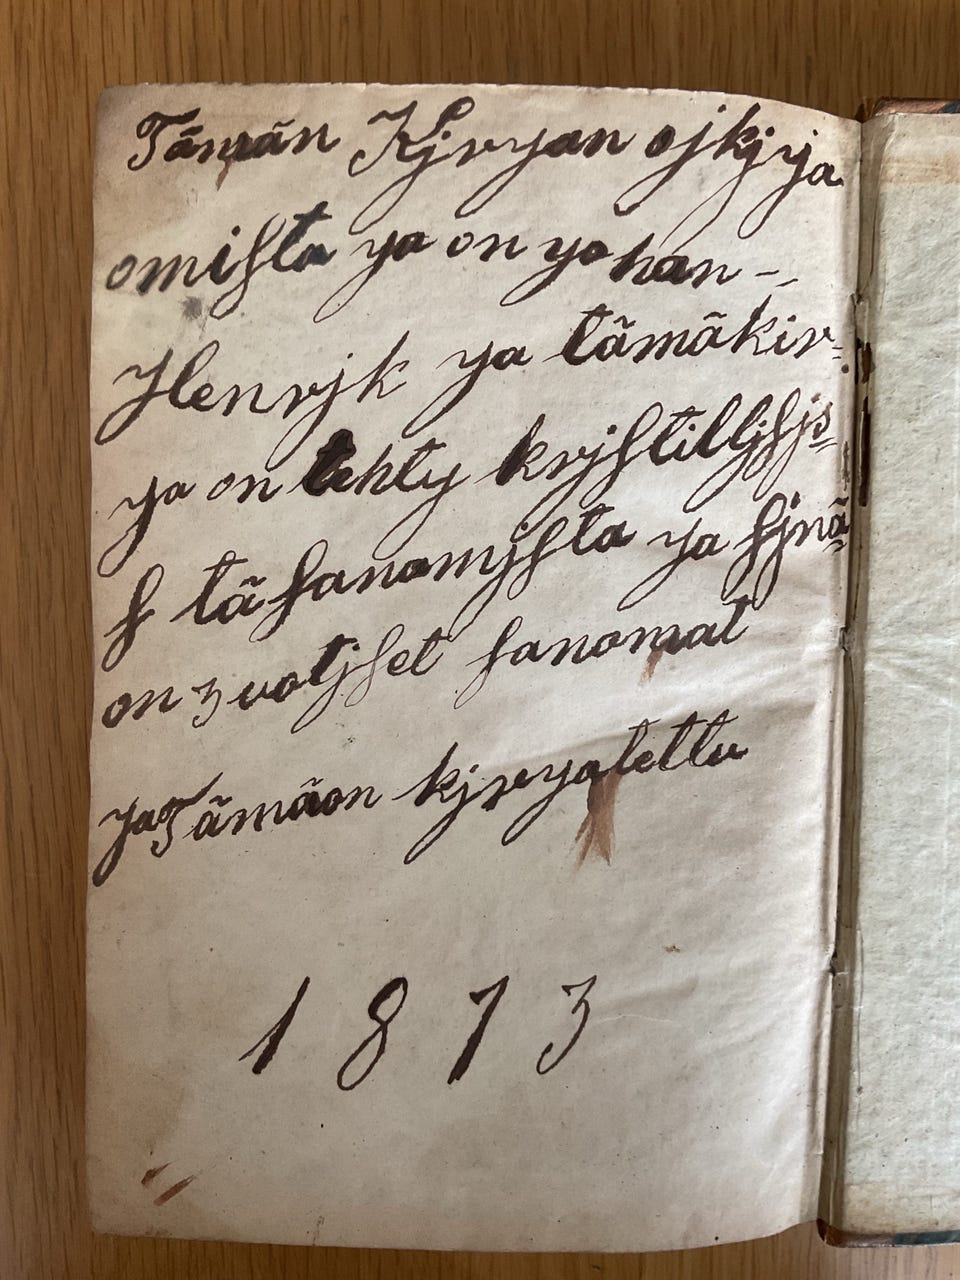 Tämän Kjryan ojkjya
omista ya on yohan-
Henrjk ya tämäkir=
ya on tehty krjstilljsjs=
s tä sanomjsta ya sjnä=
on 3 uotjset sanomat
ja Tämäon kjryatettu
1873